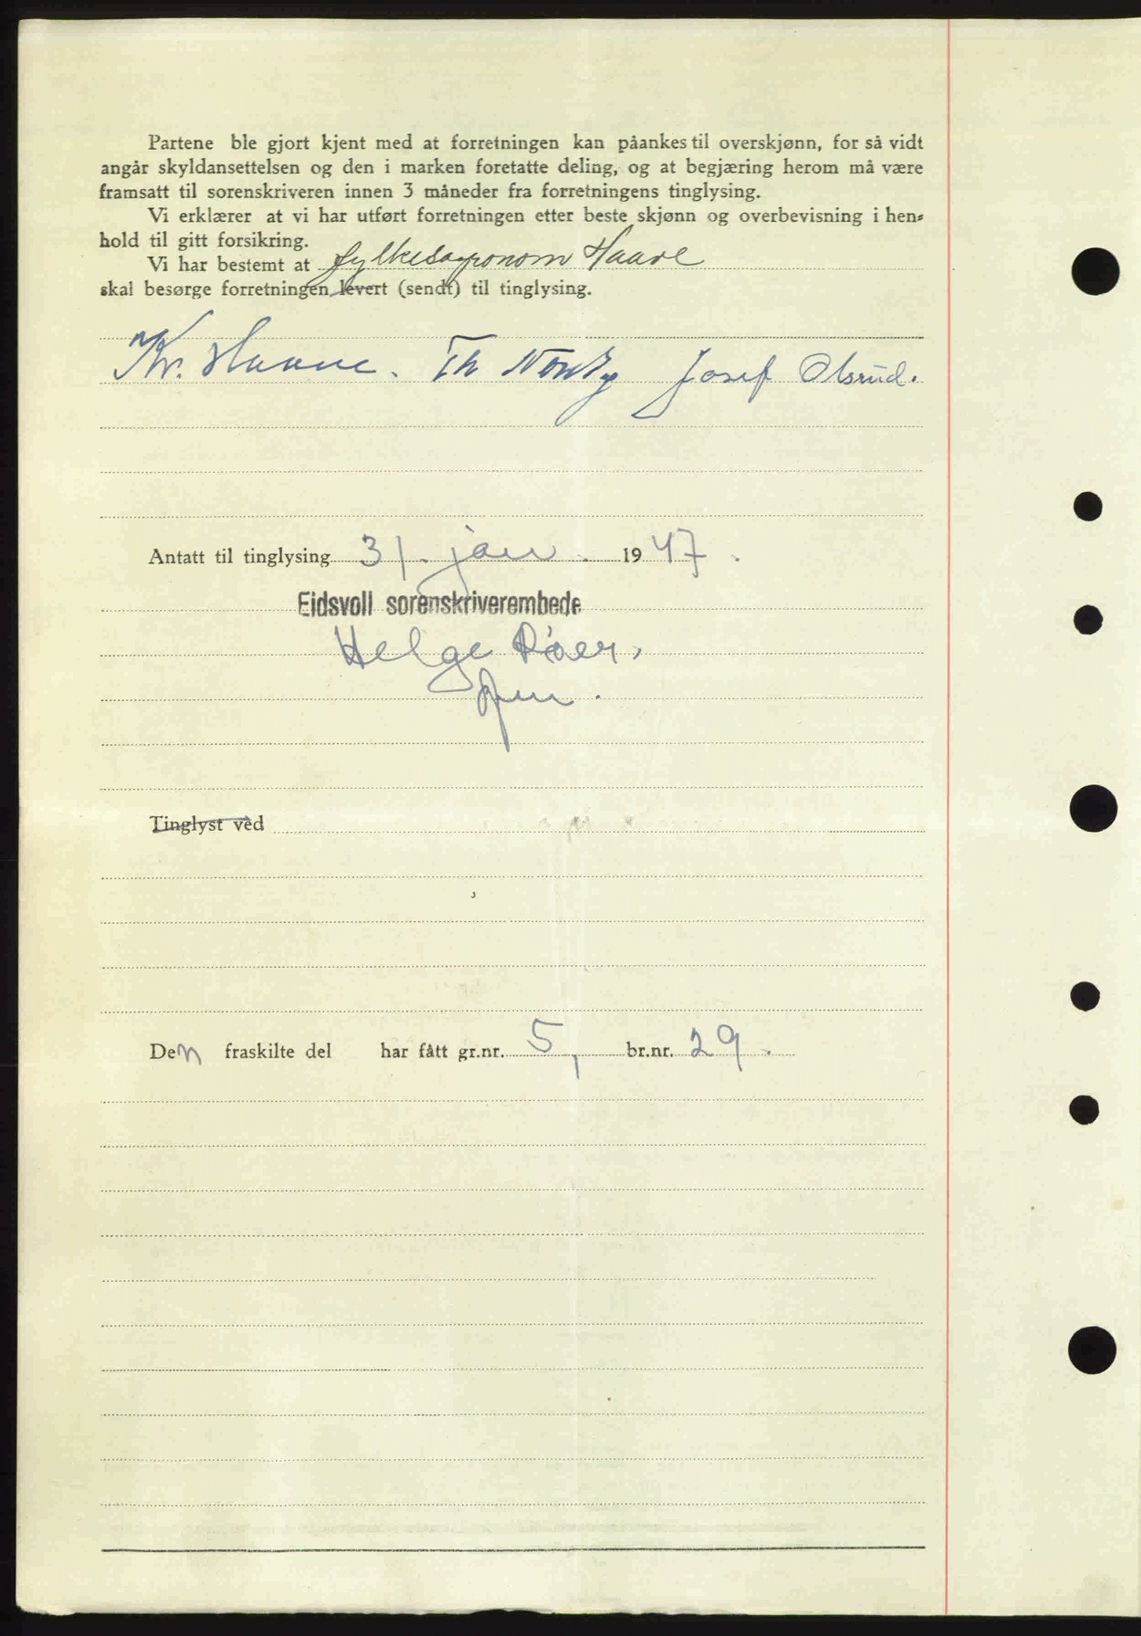 Partene ble gjort kjent med at forretningen kan påankes til overskjønn, for så vidt
angår skyldansettelsen og den i marken foretatte deling, og at begjæring herom må være
framsatt til sorenskriveren innen 3 måneder fra forretningens tinglysing.
Vi erklærer at vi har utført forretningen etter beste skjønn og overbevisning i hen-
hold til gitt forsikring.
Vi har bestemt at fylkesagronom Haave
skal besørge forretningen levert (sendt) til tinglysing.
Kr. Haave. Th Josef Olsrud.
Antatt til tinglysing 31. jan. 1947.
Eidsvoll sorenskriverembede
Helge
Tinglyst ved
Den fraskilte del har fått gr.nr. 5, br.nr. 29.